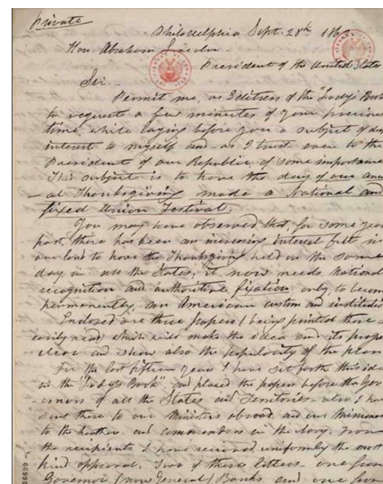 Private
Philadelphia Sept. 28th 1863.
Hon. Abraham Lincoln
President of the United States
Sir.
Permit me, as Editress of the Lady's Book
to request a few minutes of your precious
time, while laying before you a subject of
interest to myself and as I trust even to the
President of our Republic, of some importance
This subject is to have the day of our
Thanksgiving made a National and
fixed Union Festival.
You may have observed that, for some
past, there has been an increasing interest felt in
our land to have the Thanksgiving held on the same
day in all the States; it now needs National
recognition and authoritive fixation, only to become
permanently, an American custom and
Enclosed are three papers (being printed these
easily read) which will make the idea and its
clear and show also the popularity of the
For the last fifteen years I have set forth this
in the "Lady's Book", and placed the papers before the
of all the States and Territories also I
sent these to our Ministers abroad, and our
to the heathen and commanders in the Navy. From
the recipients I have received, uniformly the most
kind approval. Two of these letters, one from
Governor (now General) Banks and one from